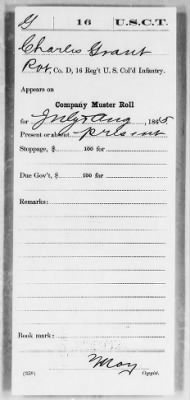 G 16 U.S.C.T.
Charles Grant
Pvt, Co. D, 16 Reg't U. S. Col'd Infantry.
Appears on
Company Muster Roll
for July & Aug, 1865
Present or absent present
Stoppage, $ 100 for
Due Gov't, $ 100 for
Remarks:
Book mark:
May
(358) Copyist.